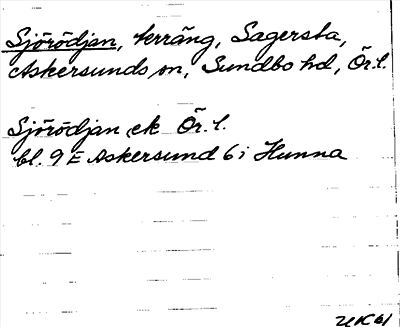 Sjörödjan, terräng, Sagersta,
Askersunds sn, Sundbo hd, Ör.l.
Sjörödjan ek Ör.l.
bl. 9 E Askersund 6i Hunna
UK61